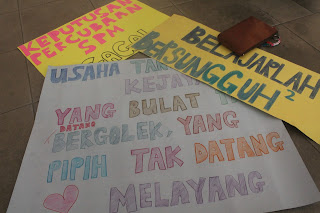 KEPUTUSAN
PERCUBAAN
SPM
GAGAL
BELAJARLAH
BERSUNGGUH²
USAHA TAK
KEJAYA
YANG BULAT
DATANG
BERGOLEK, YANG
PIPIH TAK DATANG
MELAYANG